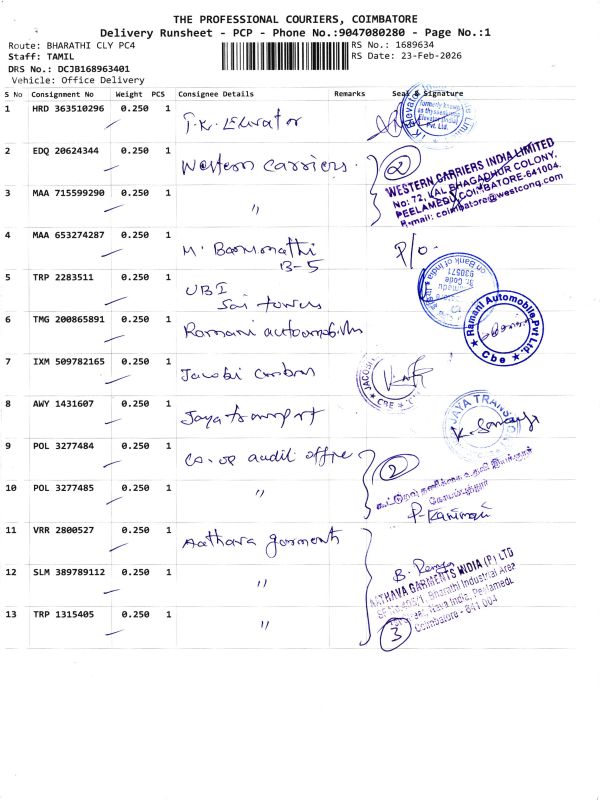 THE PROFESSIONAL COURIERS, COIMBATORE
Delivery Runsheet - PCP - Phone No.:9047080280 - Page No.:1
Route: BHARATHI CLY PC4 RS No.: 1689634
Staff: TAMIL RS Date: 23-Feb-2026
DRS No.: DCJB168963401
Vehicle: Office Delivery
S No Consignment No Weight PCS Consignee Details Remarks Seal & Signature
1 HRD 363510296 0.250 1 T.K. Elevator
formerly known as thyssenkrupp Elevator (India) Pvt. Ltd.
2 EDQ 20624344 0.250 1 Western Carriers. 2
WESTERN CARRIERS INDIA LIMITED
No: 72, LAL BHAGADHUR COLONY,
PEELAMEDU, COIMBATORE-641004.
E-mail: coimbatore@westconq.com
3 MAA 715599290 0.250 1 "
4 MAA 653274287 0.250 1 M. P/o.
B-5
5 TRP 2283511 0.250 1 UBI
Sai towers
on Bank of India
Br. Code
930571
6 TMG 200865891 0.250 1 Ramani automobiles
Ramani Automobile Pvt Ltd.
★ Cbe ★
7 IXM 509782165 0.250 1 Jacobi carbon
JACOBI
★ CBE ★
8 AWY 1431607 0.250 1 Jaya transport
JAYA TRANS
9 POL 3277484 0.250 1 Co-op audit office 2
10 POL 3277485 0.250 1 "
கோயம்புத்தூர்
11 VRR 2800527 0.250 1 Aathava garments
12 SLM 389789112 0.250 1 "
AATHAVA GARMENTS INDIA (P) LTD
Bharathi Industrial Area
Nava India, Peelamedu
Coimbatore - 641 004
13 TRP 1315405 0.250 1 " 3